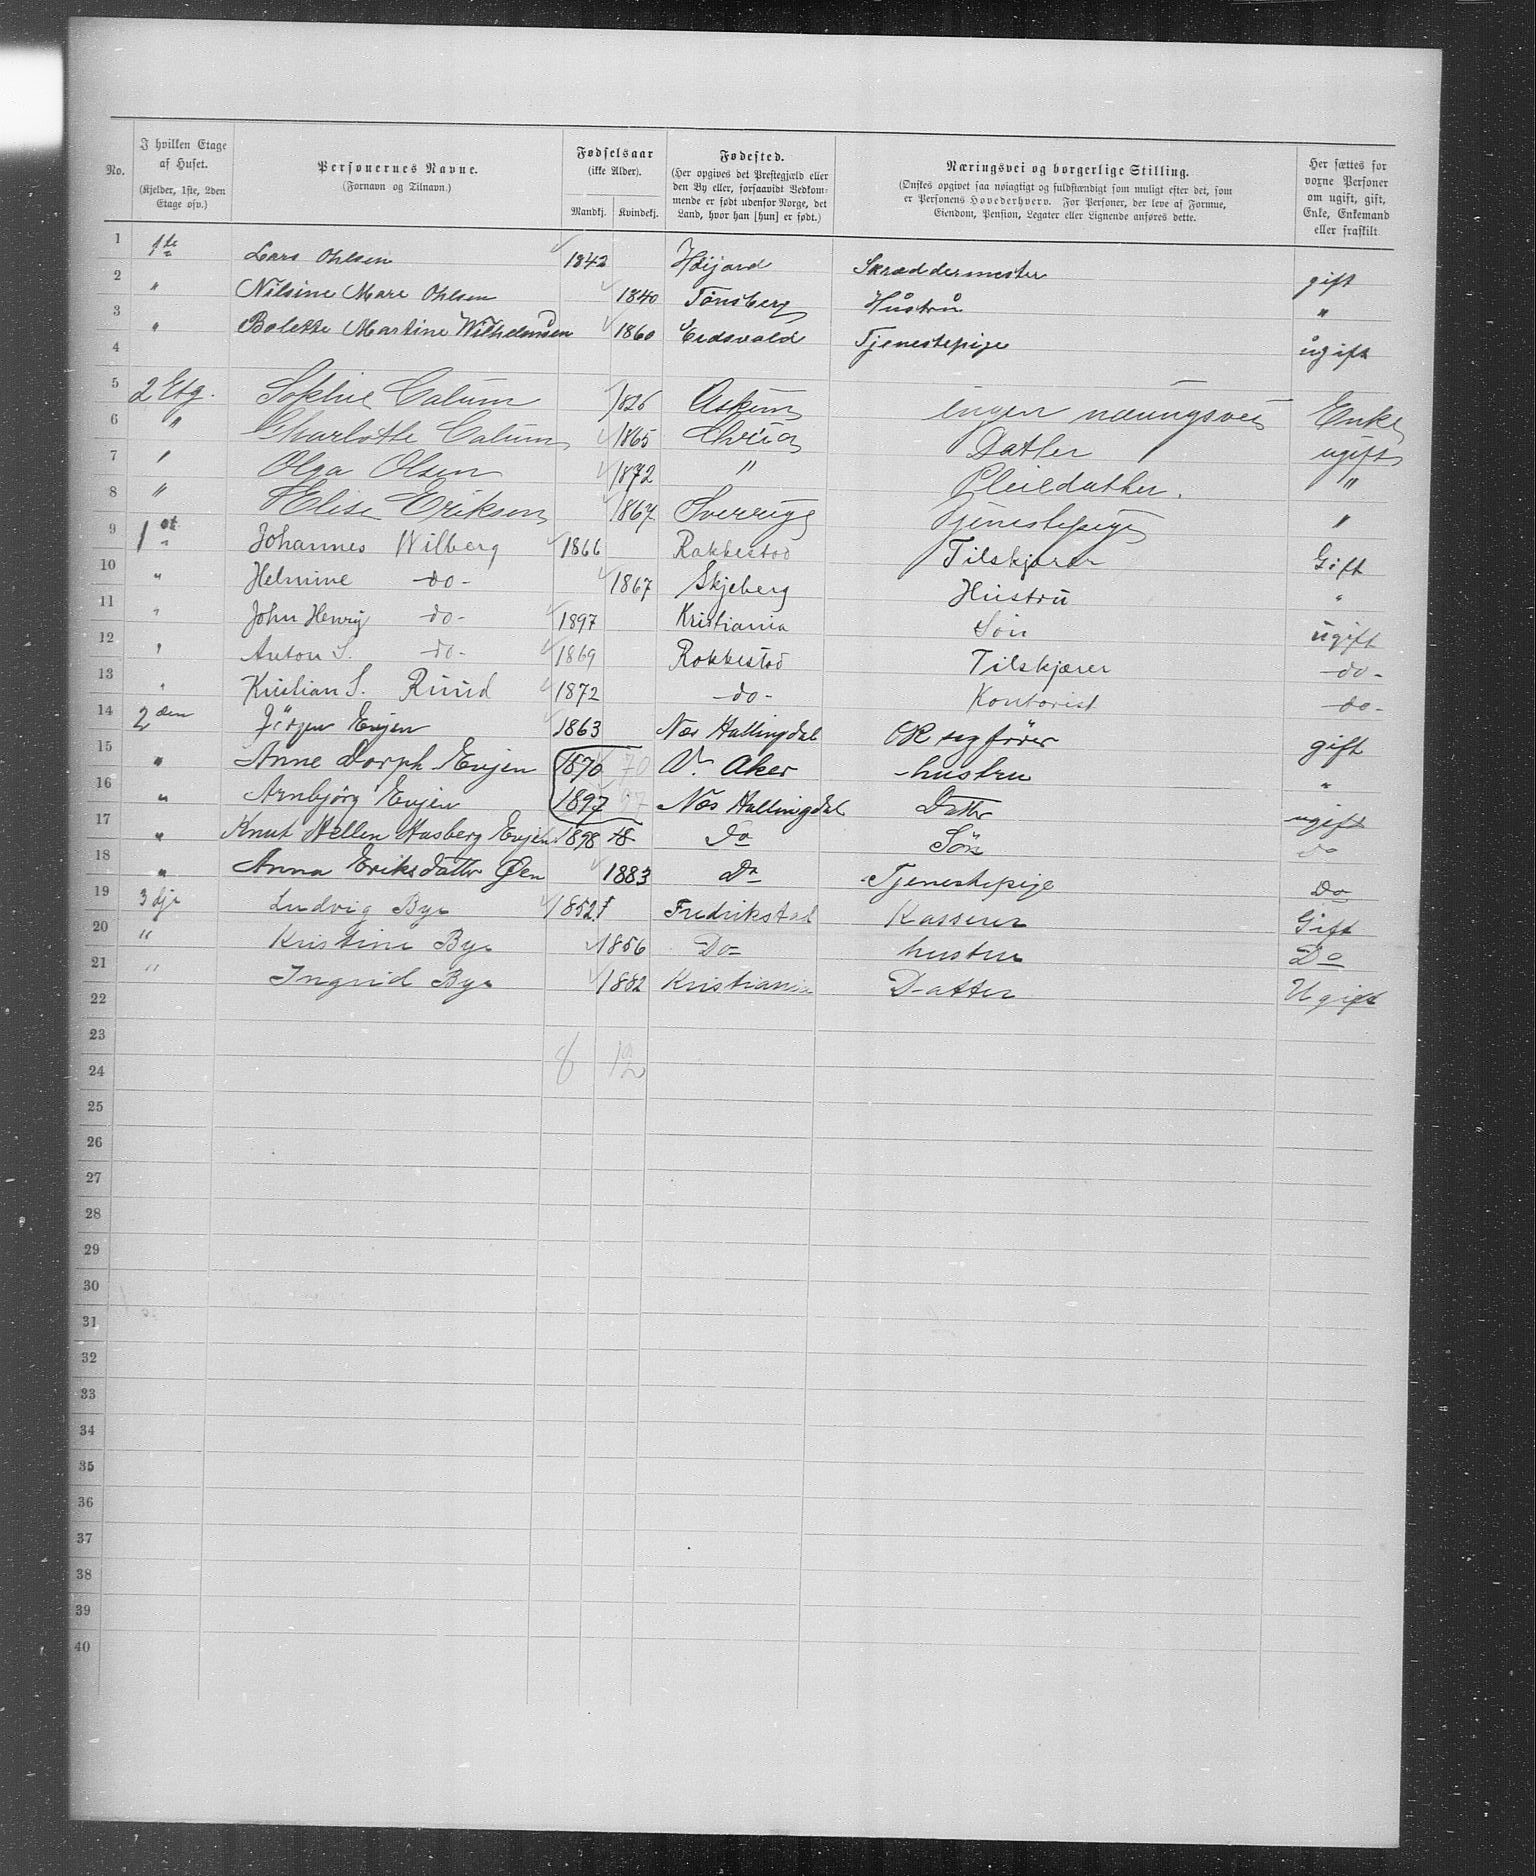 No. I hvilken Etage af Huset. (Kjelder, 1ste, 2den Etage osv.) Personernes Navne. (Fornavn og Tilnavn.) Fødselsaar (ikke Alder). Mandkj. Kvindekj. Fødested. (Her opgives det Prestegjæld eller den By eller, forsaavidt Vedkommende er født udenfor Norge, det Land, hvor han [hun] er født.) Næringsvei og borgerlige Stilling. (Ønskes opgivet saa nøiagtigt og fuldstændigt som muligt efter det, som er Personens Hovederhverv. For Personer, der leve af Formue, Eiendom, Pension, Legater eller Lignende anføres dette. Her sættes for voxne Personer om ugift, gift, Enke, Enkemand eller fraskilt
1 1ste Lars Ohlsen 1842 Høijord Skræddermester gift
2 " Nilsine Mare Ohlsen 1840 Tønsberg Hustru "
3 " Bolette Martine Wilhelmsen 1860 Eidsvold Tjenestepige ugift
4
5 2 Etg. Sophie Calum 1826 Askim ingen næringsvei Enke
6 " Charlotte Calum 1865 Chria Datter ugift
7 " Olga Olsen 1872 " Pleiedatter. "
8 " Elise Eriksen 1867 Sverrige Tjenestepige "
9 1st Johannes Wilberg 1866 Rakkestad Tilskjærer Gift
10 " Helmine do- 1867 Skjeberg Hustru "
11 " John Henry do- 1897 Kristiania Søn ugift
12 " Anton S. do- 1869 Rakkestad Tilskjærer do-
13 " Kristian S. Ruud 1872 do- Kontorist do-
14 2den Jörgen Evjen 1863 Næs Hallingdal OR sagförer gift
15 " Anne Dorph Evjen 1870 70 V. Aker hustru "
16 " Arnbjörg Evjen 1897 97 Næs Hallingdal Datter ugift
17 " Knut Hellen Hasberg Evjen 1898 Do Sön do
18 " Anna Eriksdatter Øen 1883 Do Tjenestepige Do
19 3dje Ludvig Bye 1852 Fredrikstad Kasserer Gift
20 " Kristine Bye 1856 Do hustru Do
21 " Ingrid Bye 1882 Kristiania Datter Ugift
22
23
8 12
24
25
26
27
28
29
30
31
32
33
34
35
36
37
38
39
40